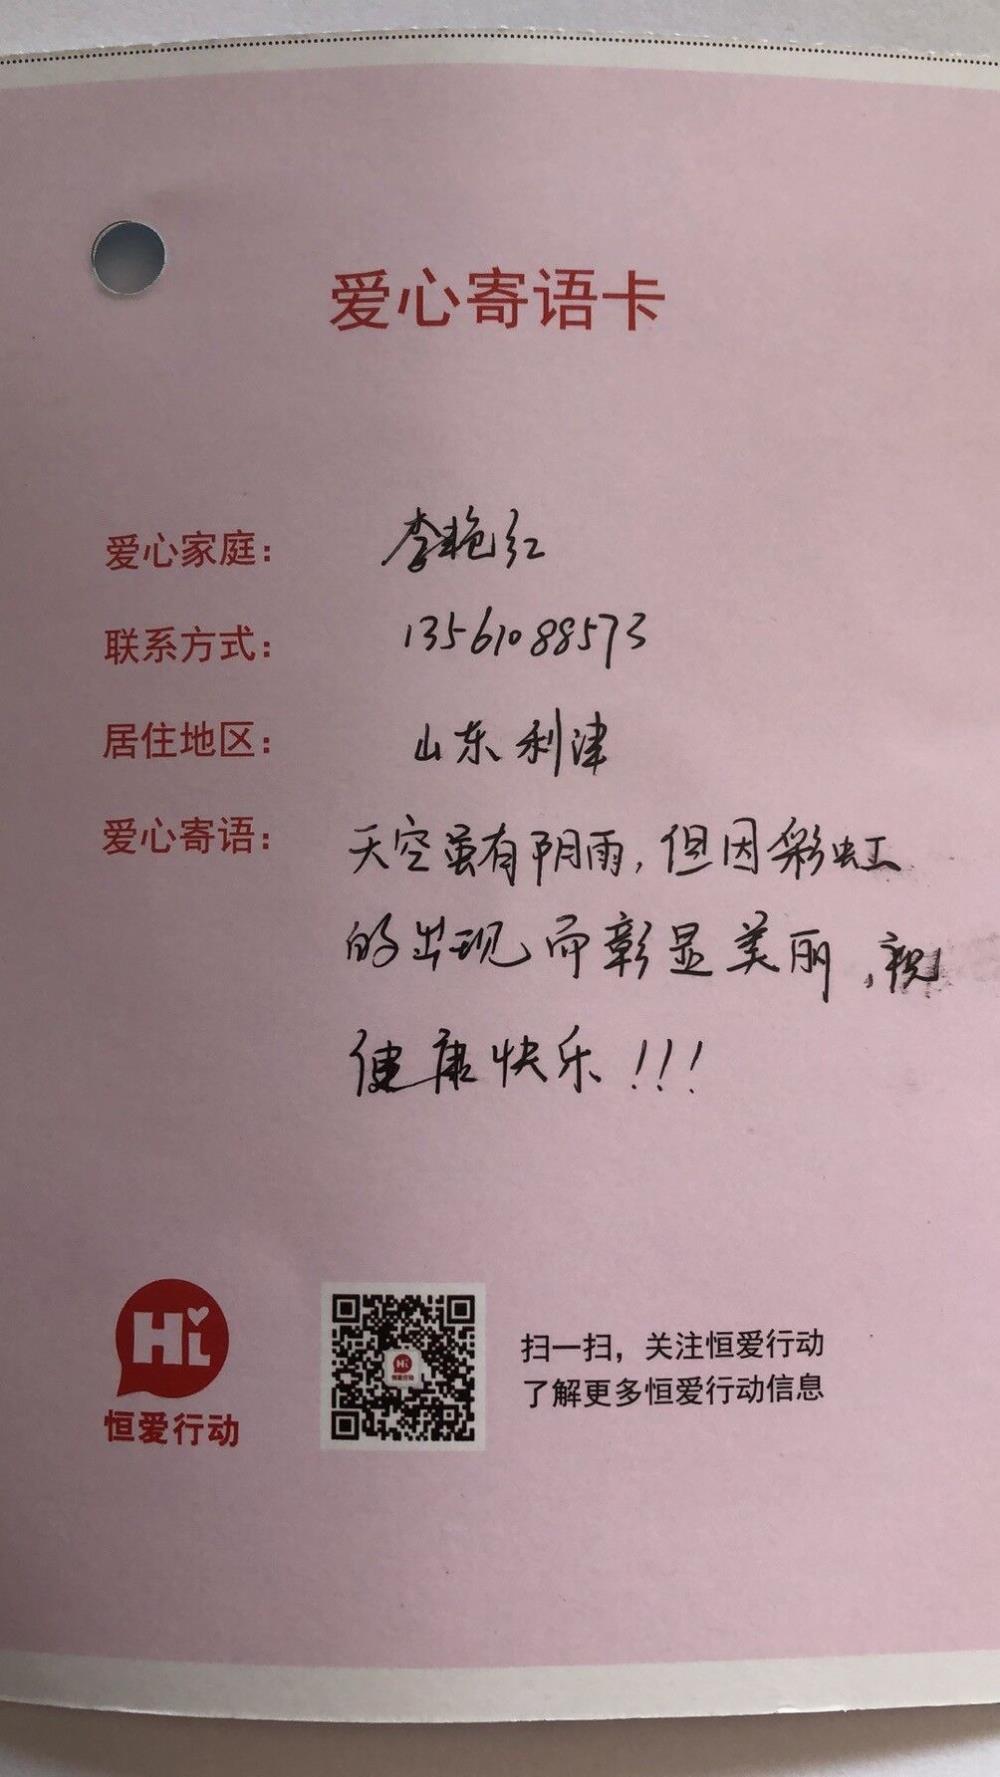 爱心寄语卡
爱心家庭： 李艳红
联系方式： 13561088573
居住地区： 山东利津
爱心寄语： 天空虽有阴雨，但因彩虹
的出现而彰显美丽，祝
健康快乐！！！
Hi
恒爱行动
Hi
恒爱行动
扫一扫，关注恒爱行动
了解更多恒爱行动信息